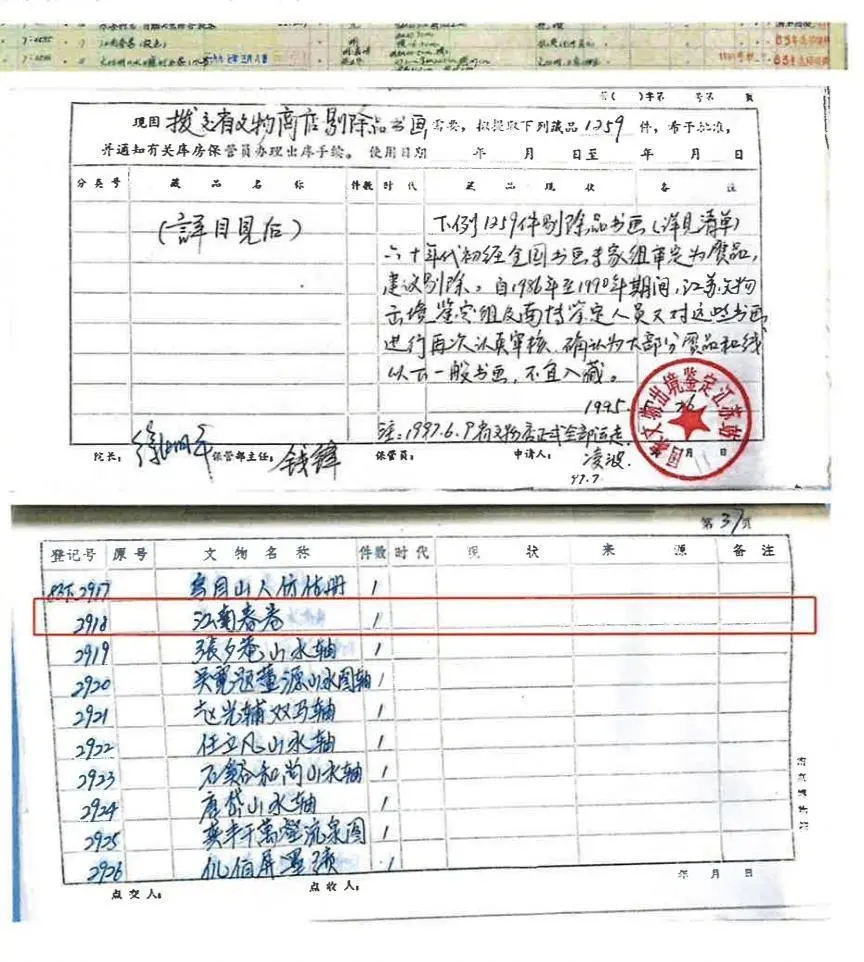 江南春卷(設色)
一九九七年三月八号
字( )字第 号第 頁
现因 拨交省文物商店剔除品书画 需要,拟提取下列藏品 1259 件,希予批准,
并通知有关库房保管员办理出库手续。 使用日期 年 月 日至 年 月 日
分类号 藏品名称 件数 时代 藏品现状 备注
(詳目見后)
下例1259件剔除品书画(详见清单)
六十年代初经全国书画专家组审定为赝品,
建议剔除。自1986年至1990年期间,江苏文物
出境鉴定组及南博鉴定人员又对这些书画
进行再次认真审核,确认为大部分赝品和线
以下一般书画,不宜入藏。
1995 26
注:1997.6.9省文物店正式全部运走
院长: 徐湖平 保管部主任: 钱锋 保管员: 申请人: 凌波 月 日
97.7
国家文物出境鉴定江苏站
第37页
登记号 原号 文物名称 件数 时代 现状 来源 备注
2917 山人仿古册 1
2918 江南春卷 1
2919 張夕菴山水轴 1
2920 吴寛题董源山水图轴 1
2921 赵光辅双马轴 1
2922 任立凡山水轴 1
2923 石谿和尚山水轴 1
2924 唐岱山水轴 1
2925 千萬壑流泉图 1
2926 仇伯屏墨蹟 1
年 月 日
点交人: 点收人: